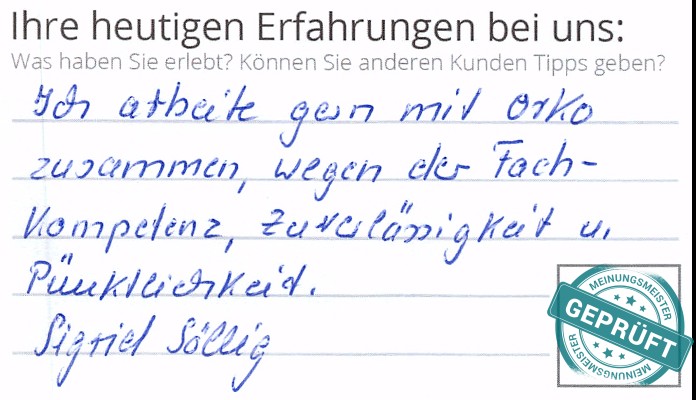 Ihre heutigen Erfahrungen bei uns:
Was haben Sie erlebt? Können Sie anderen Kunden Tipps geben?
Ich arbeite gern mit Orko
zusammen, wegen der Fach-
kompetenz, Zuverlässigkeit u.
Pünktlichkeit.
Sigrid Söllig
MEINUNGSMEISTER
GEPRÜFT
MEINUNGSMEISTER